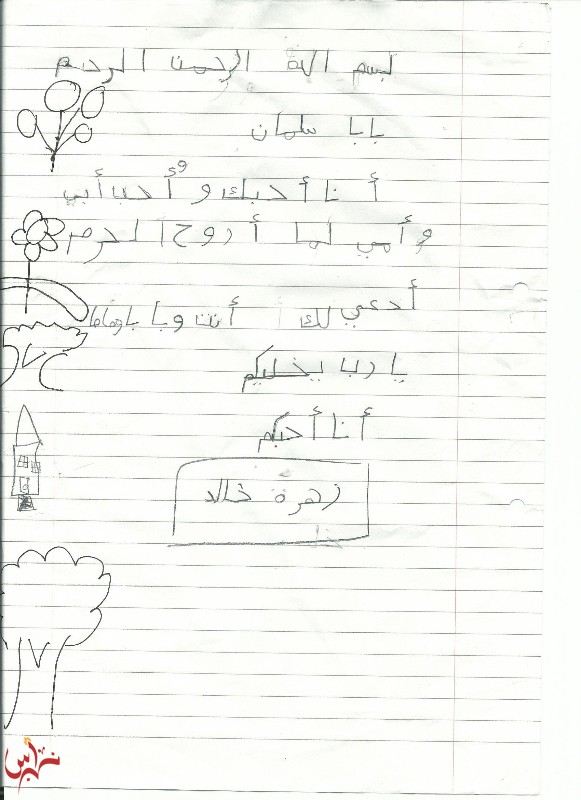 بسم الله الرحمن الرحيم
بابا سلمان
أنا أحبك و أحب أبي
و أمي لما أروح الحرم
أدعي لك أنت وبابا وماما
يا رب يخليكم
أنا أحبكم
زهرة خالد
نبراس